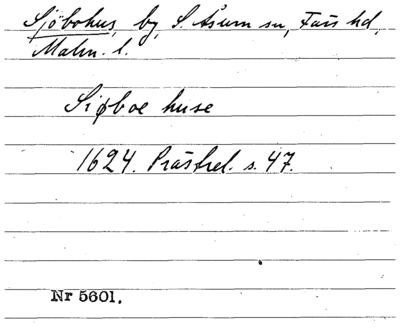 Sjöbohus, by, S. Åsum sn, Färs hd,
Malm. l.
Siøboe huse
1624. Prästrel. s. 47.
Nr 5601.